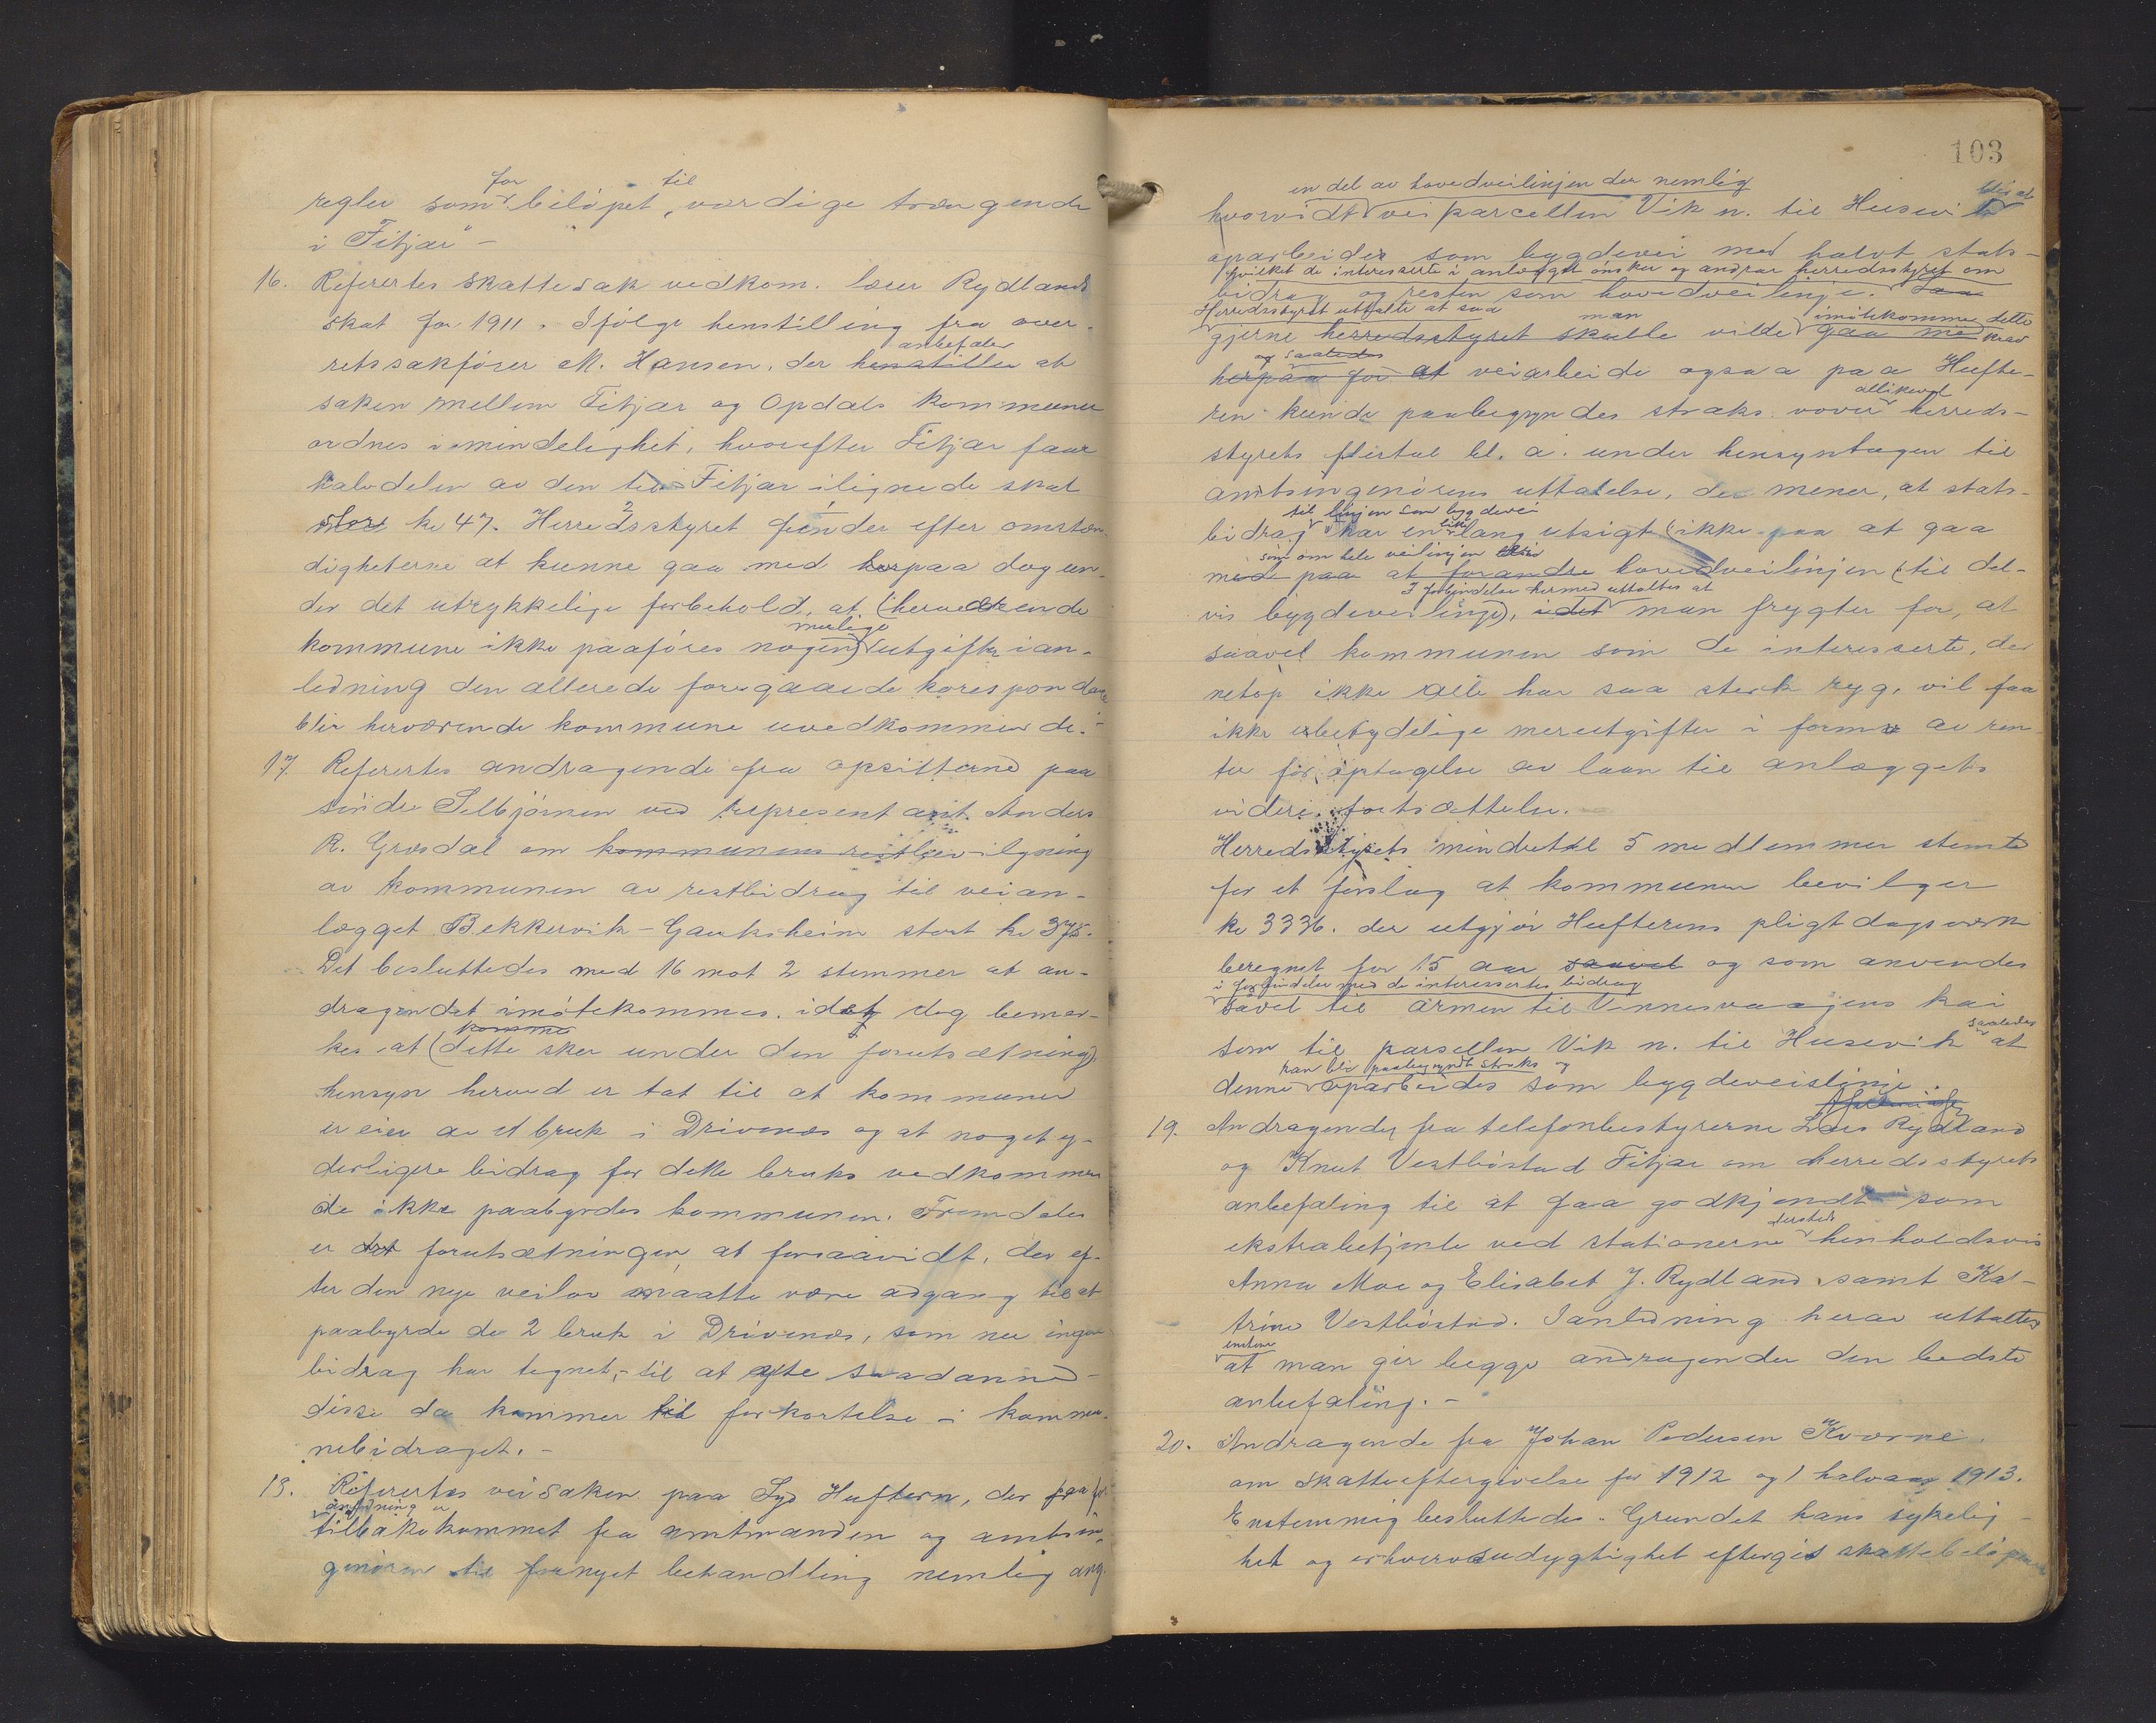 for til
regler som beløpet "værdige trængende
i Fitjar" -
16. Referertes skattesak vedkom. lærer Rydlands
skat for 1911. Ifølge henstilling fra over-
anbefaler
retssakfører M. Hansen, der henstiller at
saken mellem Fitjar og Opdals kommuner
ordnes i mindelighet, hvorefter Fitjar faar
halvdelen av den til Fitjar ilignede skat
stor kr 47. Herredsstyret finder efter omstæn-
digheterne at kunne gaa med herpaa dog un-
der det utrykkelige forbehold, at (herværende
mulige
kommune ikke paaføres nogen) utgifter i an-
ledning den allerede foregaaede korespondance
blir herværende kommune uvedkommende. -
17. Referertes andragende fra opsitterne paa
søndre Selbjørnen ved representant Anders
R. Grosdal om kommunens restbevilgning
av kommunen av restbidrag til veian-
lægget Bekkervik - Gauksheim stort kr 375.
Det besluttedes med 16 mot 2 stemmer at an-
dragendet imøtekommes. idet dog bemær-
komme
kes at (dette sker under den forutsætning)
hensyn herved er tat til at kommunen
er eier av et bruk i Drivenæs og at noget y-
derligere bidrag for dette bruks vedkommen
de ikke paabyrdes kommunen. Fremdeles
er det forutsætningen, at forsaavidt, der ef-
ter den nye veilov maatte være adgang til at
paabyrde de 2 bruk i Drivenæs, som nu ingen
bidrag har tegnet, - til at yte saadanne -
disse da kommer til forkortelse i kommu-
nebidraget. -
18. Referertes veisaken paa Syd Huftern, der
anledning er
tilbakekommet fra amtmanden og amtsin-
geniøren til fornyet behandling nemlig ang.
103
en del av hovedveilinjen der nemlig blir at
hvorvidt veiparcellen Vik n. til Husevik
oparbeides som bygdevei med halvt stats-
hvilket de interesserte i anlægget ønsker og andrar herredsstyret om
bidrag og resten som hovedveilinje. Saa
Herredsstyret uttalte at saa man imøtekomme dette
gjerne herredsstyret skulle vilde gaa med krav
og saaledes
herpaa for at veiarbeide ogsaa paa Hufte-
allikevel
ren kunde paabegyndes straks. vover herreds-
styrets flertal bl. a. under hensyntagen til
amtsingeniørens uttalelse, der mener, at stats-
til linjen som bygdevei
bidrag har en like lang utsigt (ikke paa at gaa
som om hele veilinjen blir
med paa at forandre hovedveilinjen (til del-
I forbindelse hermed uttaltes at
vis bygdeveilinje), idet man frygter for, at
saavel kommunen som de interesserte, der
netop ikke alle har saa sterk ryg, vil faa
ikke ubetydelige merutgifter i form av ren-
ter for optagelse av laan til anlæggets
videre fortsættelse.
Herredsstyrets mindretal 5 medlemmer stemte
for et forslag at kommunen bevilger
kr 3336. der utgjør Hufterens pligtdagsverk
beregnet for 15 aar saavel og som anvendes
i forbindelse med de interessertes bidrag
savel til armen til Vinnesvaagens kai
saaledes
som til parsellen Vik n. til Husevik at
kan bli paabegyndt straks og
denne oparbeides som bygdeveislinje.
19. Andragender fra telefonbestyrerne Lars Rydland
og Knut Vestbøstad Fitjar om herredsstyrets
anbefaling til at faa godkjendt som
dersteds
ekstrabetjente ved stationerne henholdsvis
Anna Moe og Elisabet J. Rydland, samt Ka-
trine Vestbøstad. I anledning herav uttaltes
enstem
at man gir begge andragender den bedste
anbefaling. -
20. Andragende fra Johan Pedersen Kværne
om skatteeftergivelse for 1912 og 1 halvaar 1913.
Enstemmig besluttedes. Grundet hans sykelig-
het og erhvervsudygtighet eftergis skattebeløpene